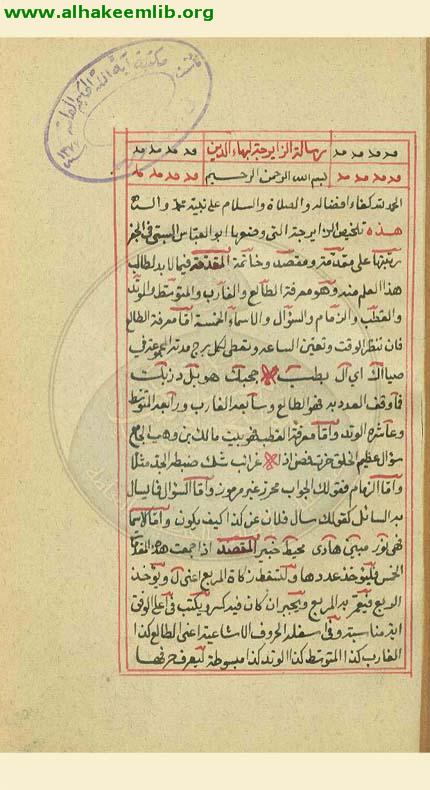 www.alhakeemlib.org
مكتبة آية الله الحكيم العامة
رسالة الزايرجة لبهاء الدين
بسم الله الرحمن الرحيم
الحمد لله كفاء افضاله والصلاة والسلام على نبيه محمد وآله
هذه تلخيص الزايرجة التي وضعها ابو العباس السبتي في الجفر
رتبتها على مقدمة ومقصد وخاتمة المقدمة فيما لابد لطالب
هذا العلم منه وهو معرفة الطالع والغارب والمتوسط والوتد
والقطب والزمام والسؤال والاسماء الخمسة اما معرفة الطالع
فان تنظر الوقت وتعين الساعه وتعطي لكل برج مدته المجموعة في
اي آل بطيب هو بل
فما وقف العدد به فهو الطالع وسابعه الغارب ورابعه المتوسط
وعاشره الوتد واما معرفة القطب فهو بيت مالك بن وهب
سؤال عظيم الخلق حزت فصن اذا غرائب شك ضبطه الجد مثلا
واما الزمام فقولك الجواب محرز غير مرموز واما السؤال فما يسال
به السائل كقولك سال فلان عن كذا كيف يكون واما الاسماء
فهي نور مبين هادي محيط خبير المقصد اذا جمعت هذه المقدمات
الخمس فليؤخذ عددها
المربع ويجبر ان كان فيه كسر ويكتب في اعلى الوفق
وفي اسفله الحروف الاثنا عشر اعني الطالع كذا
الغارب كذا المتوسط كذا الوتد كذا مبسوطة